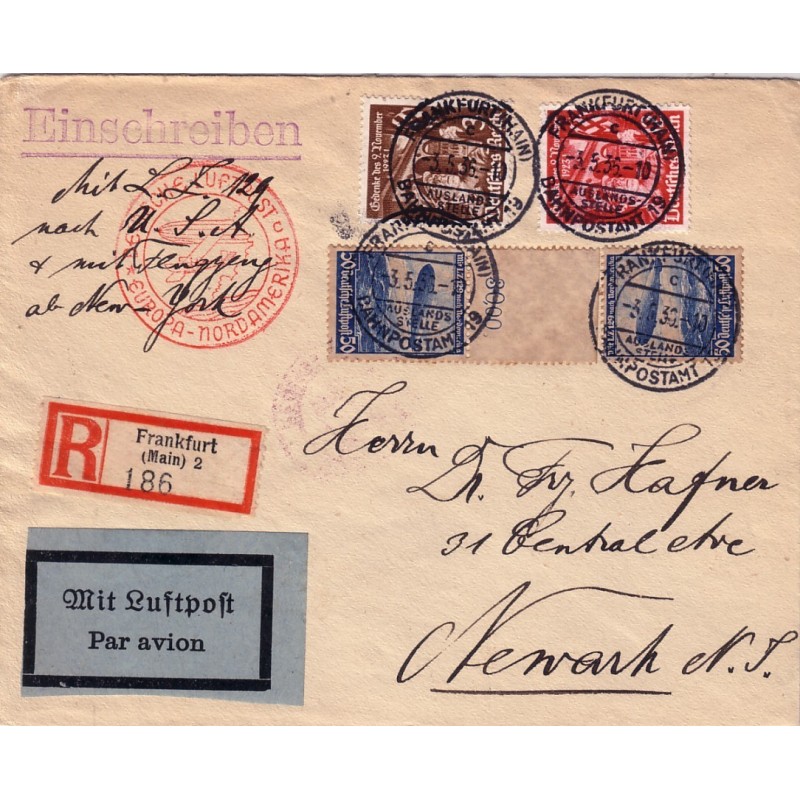 Einschreiben
Mit L.Z. 129
nach U.S.A
& mit Flugzeug
ab New-York
EUROPA - NORDAMERIKA
Gedenke des 9. November 1923!
3
Deutsches Reich
FRANKFURT (MAIN)
c
3.5.36.-10
AUSLANDS-
STELLE
BAHNPOSTAMT 19
9. November 1923!
Deutsches Reich
FRANKFURT (MAIN)
c
-3.5.36.-10
AUSLANDS-
STELLE
BAHNPOSTAMT 19
50 Deutsche Luftpost 50
Mit LZ 129 nach Nordamerika
(MAIN)
c
3.5.36.-
AUSLANDS-
STELLE
BAHNPOSTAMT 19
Mit LZ 129 nach Nordamerika
50 Deutsche Luftpost 50
FRANKFURT
c
AUSLANDS-
STELLE
POSTAMT 19
R
Frankfurt
(Main) 2
186
Mit Luftpost
Par avion
Herrn
Dr. Fz. Hafner
31 Central Ave
Newark N.J.